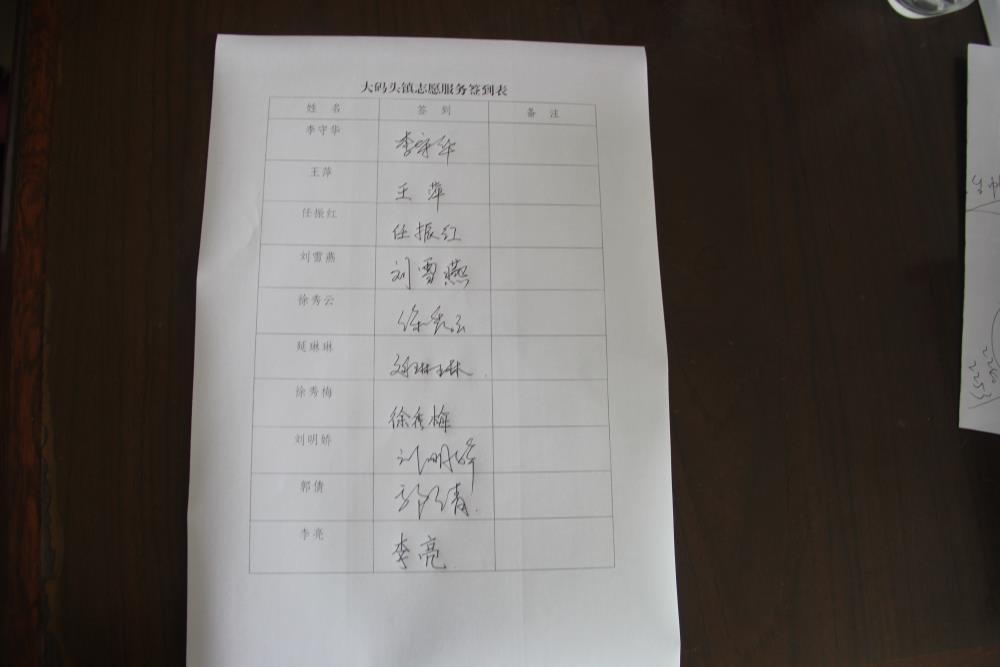 大码头镇志愿服务签到表
姓 名 签 到 备 注
李守华 李守华
王萍 王萍
任振红 任振红
刘雪燕 刘雪燕
徐秀云 徐秀云
延琳琳 延琳琳
徐秀梅 徐秀梅
刘明娇 刘明娇
郭倩 郭倩
李亮 李亮